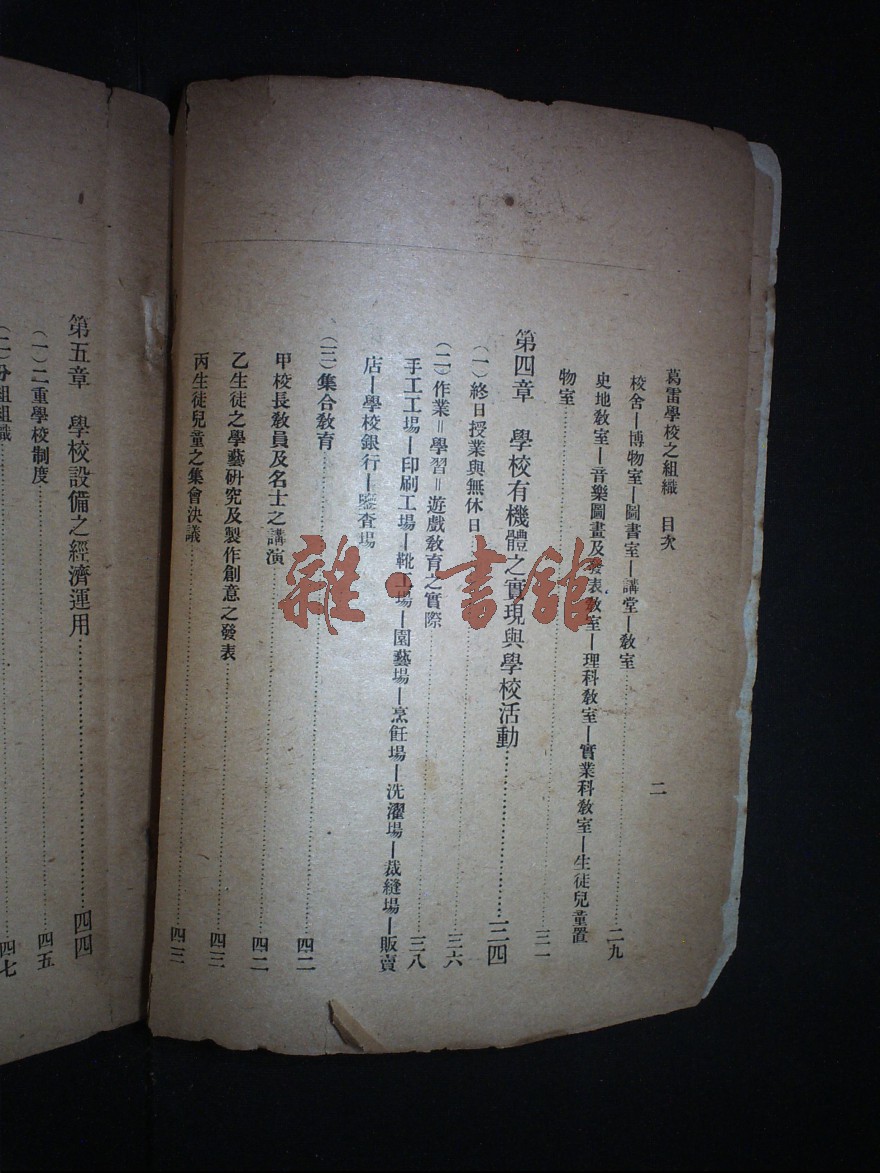 葛雷學校之組織　目次
二
校舍—博物室—圖書室—講堂—敎室……二九
史地敎室—音樂圖畫及發表敎室—理科敎室—實業科敎室—生徒兒童置
物室……三一
第四章　學校有機體之實現與學校活動……三四
(一)終日授業與無休日……三六
(二)作業＝學習＝遊戲敎育之實際……三八
手工工場—印刷工場—靴工場—園藝場—烹飪場—洗濯場—裁縫場—販賣
店—學校銀行—鑒査場
(三)集合敎育……四二
甲校長敎員及名士之講演……四二
乙生徒之學藝硏究及製作創意之發表……四三
丙生徒兒童之集會決議……四三
第五章　學校設備之經濟運用……四四
(一)二重學校制度……四五
(二)分組組織……四七
雜·書館